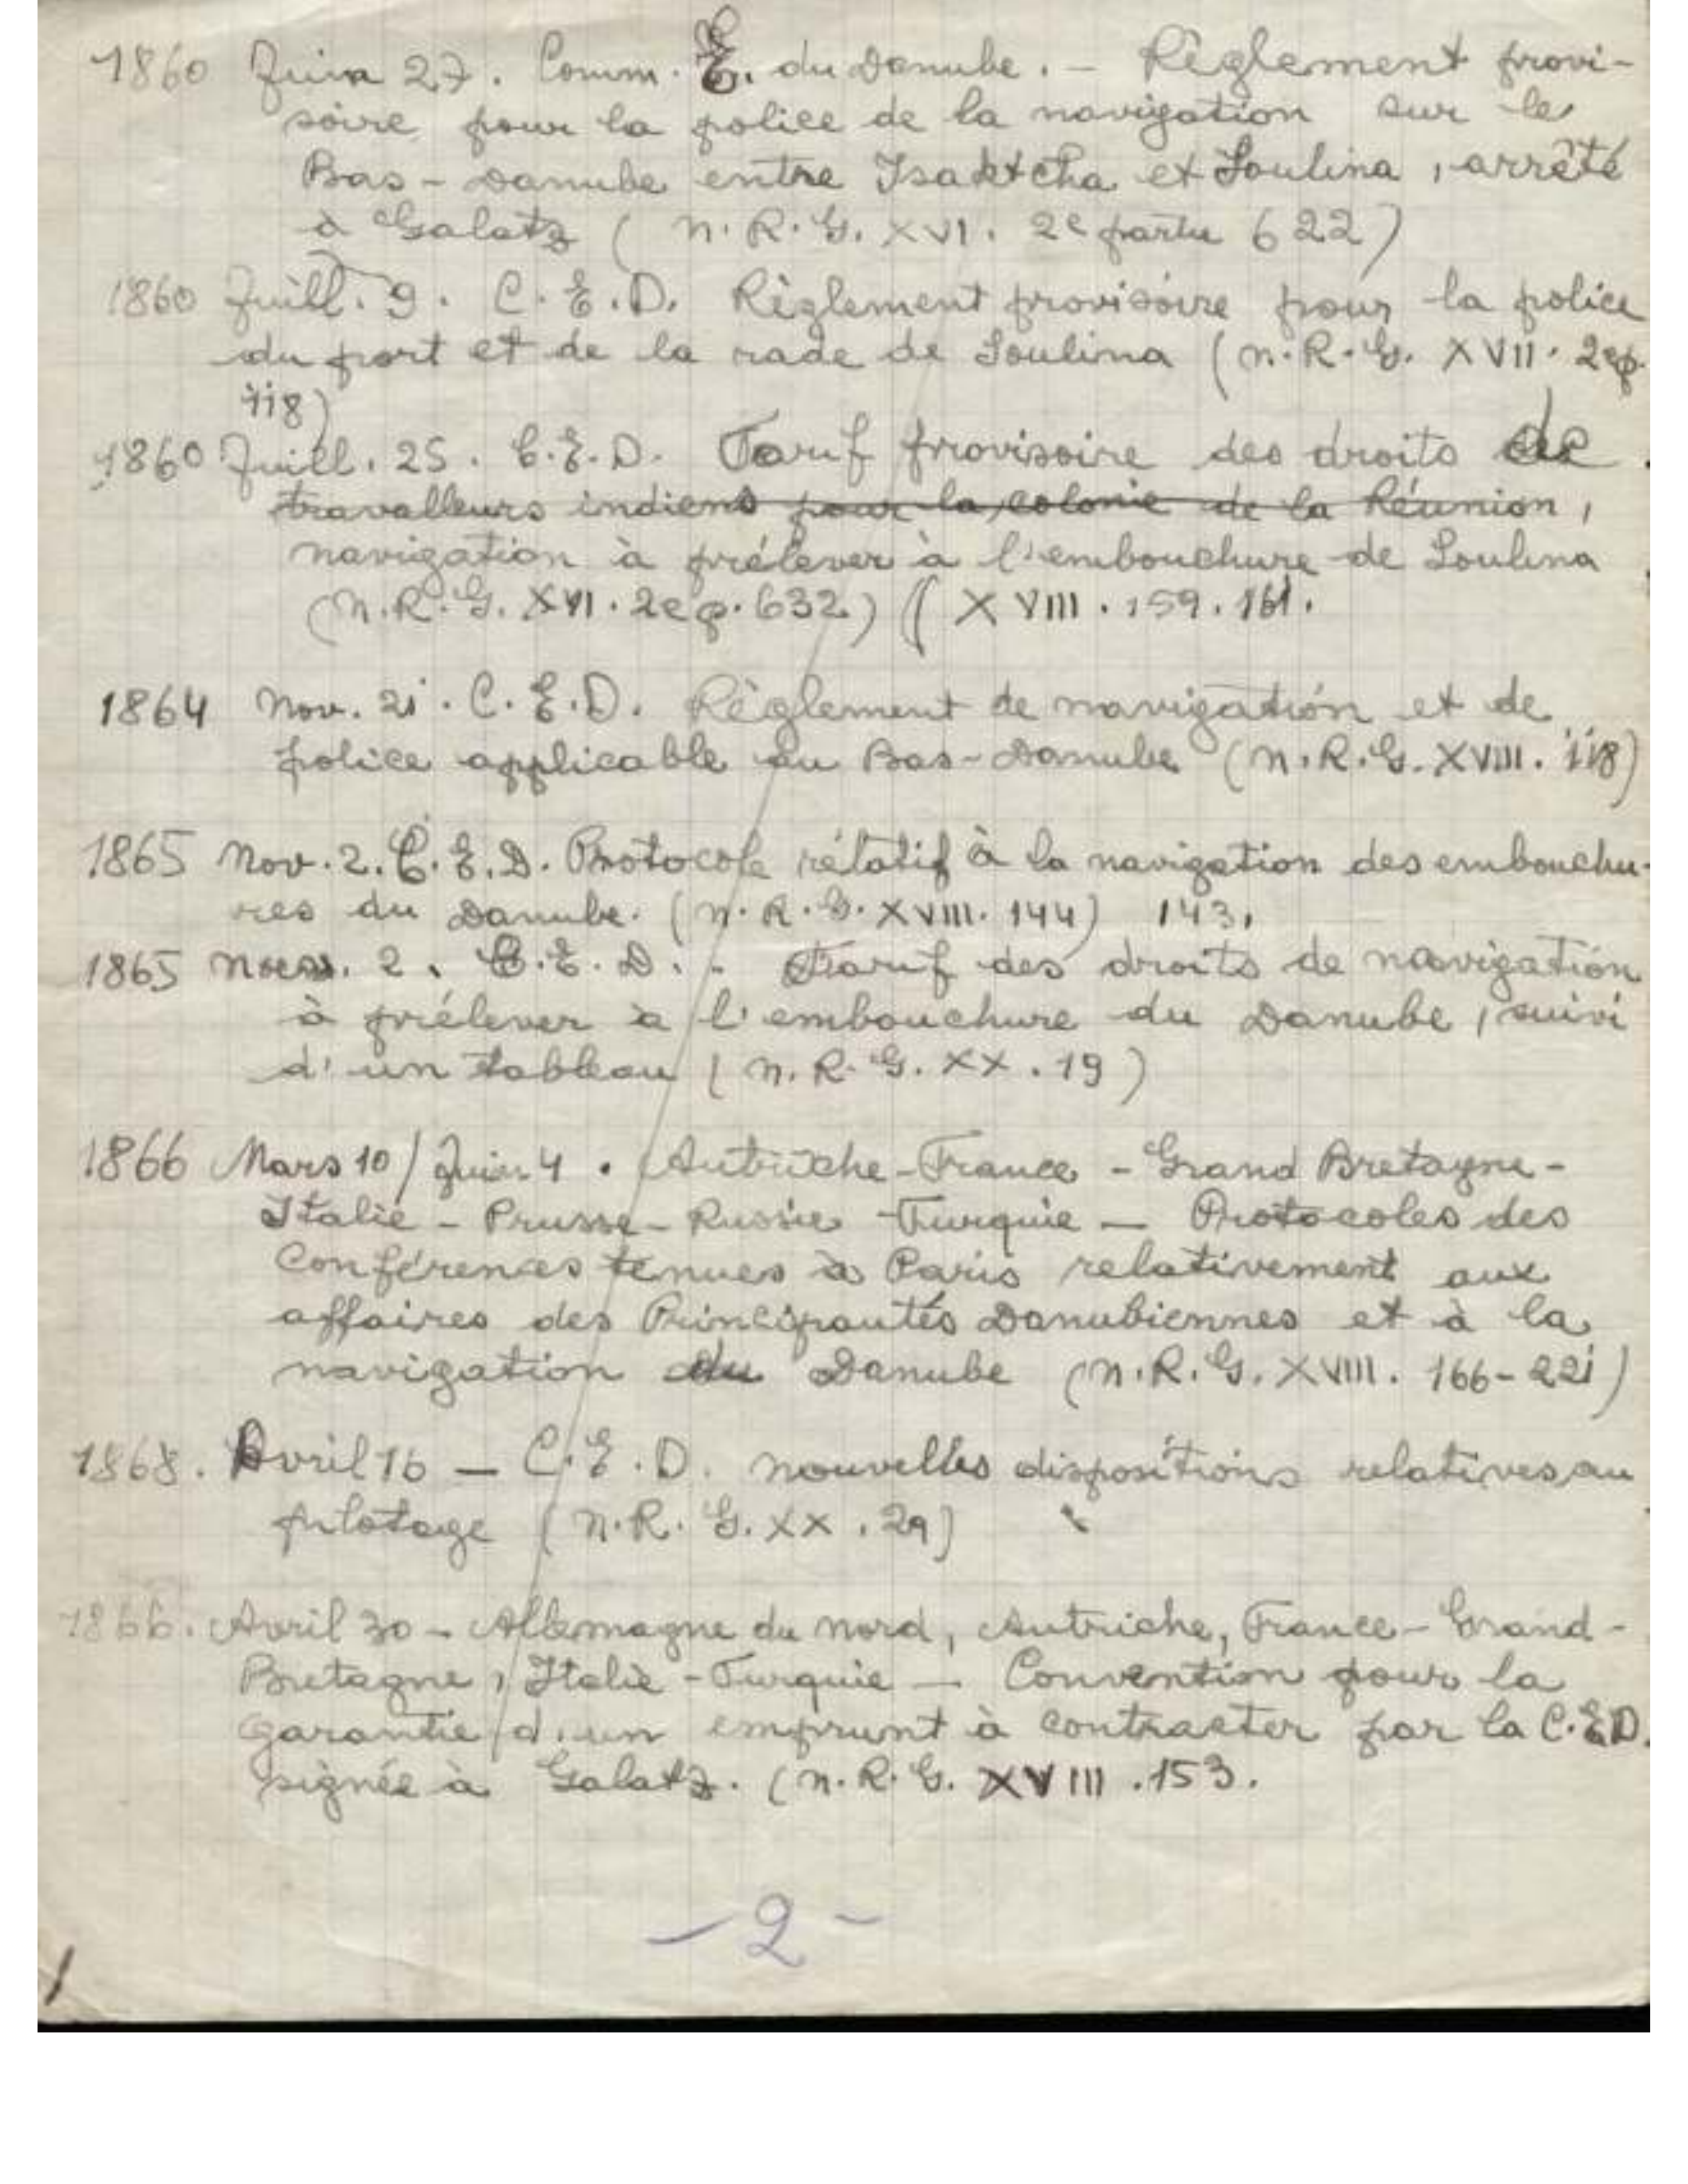 1860 Juin 27. Comm. E. du Danube. - Règlement provi-
soire pour la police de la navigation sur le
Bas-Danube entre Isaktcha et Soulina, arrêté
à Galatz (N.R.G. XVI. 2e partie 622)
1860 Juill. 9. C.E.D. Règlement provisoire pour la police
du port et de la rade de Soulina (N.R.G. XVII. 2e p.
118)
1860 Juill. 25. C.E.D. Tarif provisoire des droits de
travalleurs indiens pour la colonie de la Réunion,
navigation à prélever à l'embouchure de Soulina
(N.R.G. XVI. 2e p. 632) ( XVIII. 159. 161.
1864 Nov. 21. C.E.D. Règlement de navigation et de
police applicable au Bas-Danube (N.R.G. XVIII. 118)
1865 Nov. 2. C.E.D. Protocole rélatif à la navigation des embouchu-
res du Danube. (N.R.G. XVIII. 144) 143,
1865 2. C.E.D. - Tarif des droits de navigation
à prélever à l'embouchure du Danube, suivi
d'un tableau (N.R.G. XX. 19)
1866 Mars 10/Juin 4. Autriche-France-Grand Bretagne-
Italie-Prusse-Russie-Turquie — Protocoles des
Conférences tenues à Paris relativement aux
affaires des Principautés Danubiennes et à la
navigation du Danube (N.R.G. XVIII. 166-221)
1868. Avril 16 — C.E.D. Nouvelles dispositions relatives au
pilotage (N.R.G. XX. 29)
1866. Avril 30 - Allemagne du Nord, Autriche, France-Grand-
Bretagne, Italie-Turquie — Convention pour la
garantie d'un emprunt à contracter par la C.E.D.
signée à Galatz. (N.R.G. XVIII. 153.
-2-